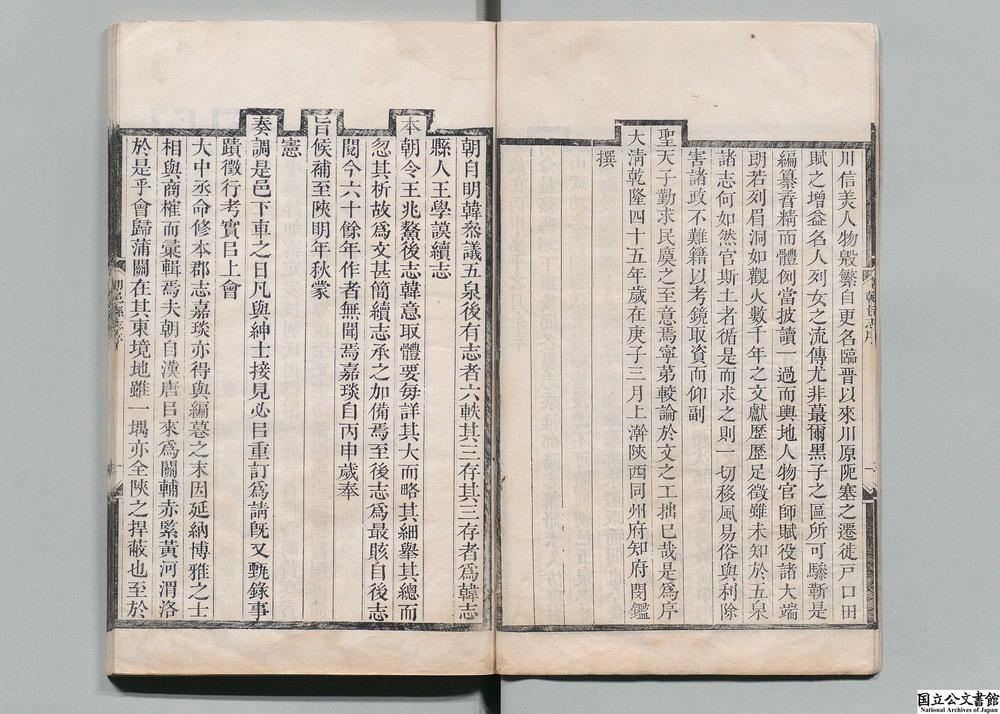 川信美人物殷繁自更名臨晋以來川原阨塞之遷徙戶口田
賦之增益名人列女之流傳尤非蕞爾黑子之區所可驂靳是
編纂着精而體例當披讀一過而輿地人物官師賦役諸大端
朗若列眉洞如觀火數千年之文獻歷歷足徵雖未知於五泉
諸志何如然官斯土者循是而求之則一切移風易俗與利除
害諸政不難籍以考鏡取資而仰副
聖天子勤求民瘼之至意焉寧第較論於文之工拙已哉是爲序
大淸乾隆四十五年歲在庚子三月上澣陝西同州府知府閔鑑
撰
朝自明韓叅議五泉後有志者六軼其三存其三存者爲韓志
縣人王學謨續志
本朝令王兆鰲後志韓意取體要每詳其大而略其細舉其總而
忽其析故爲文甚簡續志承之加備焉至後志爲最賅自後志
閱今六十餘年作者無聞焉嘉琰自丙申歲奉
旨候補至陝明年秋蒙
憲
奏調是邑下車之日凡與紳士接見必㠯重訂爲請旣又甄錄事
蹟徵行考實㠯上會
大中丞命修本郡志嘉琰亦得與編摹之末因延納博雅之士
相與商榷而彙輯焉夫朝自漢唐㠯來爲關輔赤緊黃河渭洛
於是乎會歸蒲關在其東境地雖一堣亦全陝之捍蔽也至於
朝邑縣志序
国立公文書館
National Archives of Japan